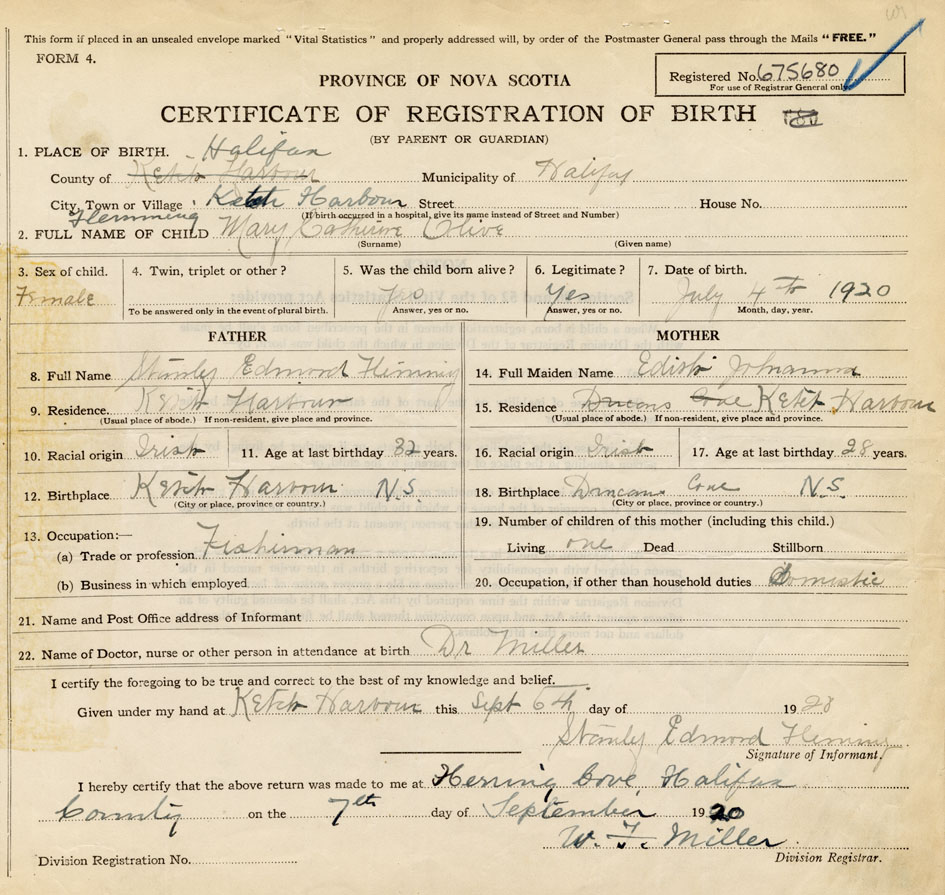 This form if placed in an unsealed envelope marked "Vital Statistics" and properly addressed will, by order of the Postmaster General pass through the Mails "FREE."
FORM 4.
PROVINCE OF NOVA SCOTIA
Registered No. 675680
For use of Registrar General only.
CERTIFICATE OF REGISTRATION OF BIRTH
(BY PARENT OR GUARDIAN)
1. PLACE OF BIRTH. Halifax
County of Ketch Harbour Municipality of Halifax
City, Town or Village Ketch Harbour Street House No.
(If birth occurred in a hospital, give its name instead of Street and Number)
Flemming
2. FULL NAME OF CHILD Mary Catherine Olive
(Surname) (Given name)
3. Sex of child. 4. Twin, triplet or other? 5. Was the child born alive? 6. Legitimate? 7. Date of birth.
Female Yes Yes July 4th 1920
To be answered only in the event of plural birth. Answer, yes or no. Answer, yes or no. Month, day, year.
FATHER MOTHER
8. Full Name Stanley Edmond Fleming 14. Full Maiden Name Edith Johanna
9. Residence. Ketch Harbour 15. Residence Duncans Cove Ketch Harbour
(Usual place of abode.) If non-resident, give place and province. (Usual place of abode.) If non-resident, give place and province.
10. Racial origin Irish 11. Age at last birthday 32 years. 16. Racial origin Irish 17. Age at last birthday 28 years.
12. Birthplace Ketch Harbour N.S. 18. Birthplace Duncans Cove N.S.
(City or place, province or country.) (City or place, province or country.)
13. Occupation:— 19. Number of children of this mother (including this child.)
(a) Trade or profession Fisherman Living one Dead Stillborn
(b) Business in which employed 20. Occupation, if other than household duties Domestic
21. Name and Post Office address of Informant
22. Name of Doctor, nurse or other person in attendance at birth Dr Miller
I certify the foregoing to be true and correct to the best of my knowledge and belief.
Given under my hand at Ketch Harbour this Sept 6th day of 19
Stanley Edmond Fleming
Signature of Informant.
I hereby certify that the above return was made to me at Herring Cove, Halifax
County on the 7th day of September 1920
W. F. Miller
Division Registration No. Division Registrar.